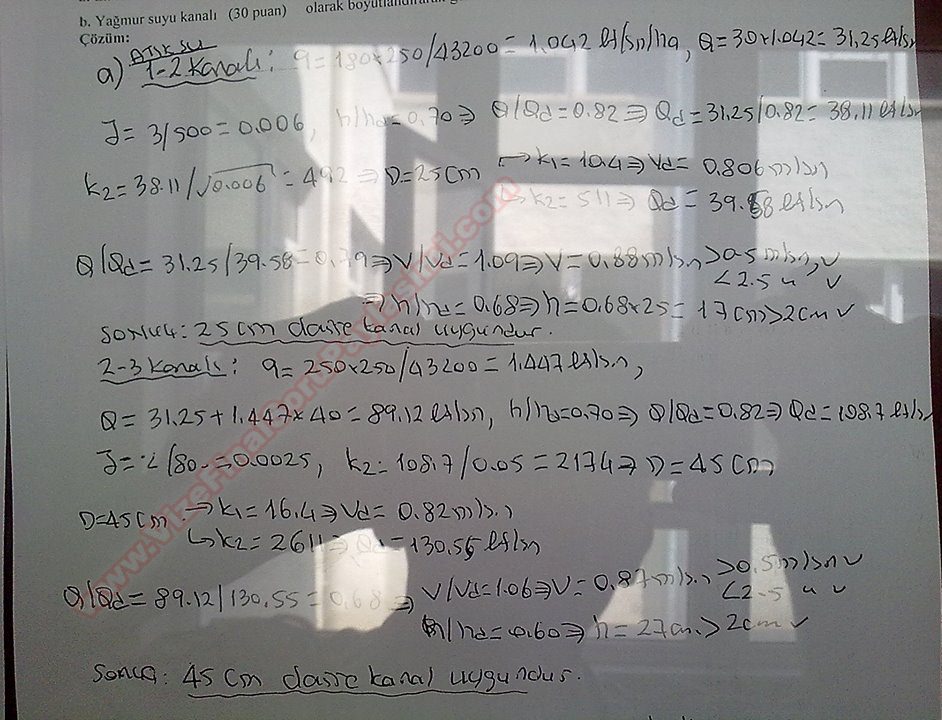 b. Yağmur suyu kanalı (30 puan) olarak boyutlandırarak
Çözüm:
ATIK SU
a) 1-2 Kanalı: q = 180×250/43200 = 1.042 lt/sn/ha, Q = 30×1.042 = 31.25 lt/sn
J = 3/500 = 0.006, h/hd = 0.70 ⇒ Q/Qd = 0.82 ⇒ Qd = 31.25/0.82 = 38.11 lt/sn
k2 = 38.11/√0.006 = 492 ⇒ D = 25cm → k1 = 10.4 ⇒ Vd = 0.806 m/sn
↳ k2 = 511 ⇒ Qd = 39.58 lt/sn
Q/Qd = 31.25/39.58 = 0.79 ⇒ V/Vd = 1.09 ⇒ V = 0.88 m/sn > 0.5 m/sn, ν
< 2.5 " ν
⇒ h/hd = 0.68 ⇒ h = 0.68×25 = 17cm > 2cm ν
SONUÇ: 25cm daire kanal uygundur.
2-3 Kanalı: q = 250×250/43200 = 1.447 lt/sn,
Q = 31.25 + 1.447×40 = 89.12 lt/sn, h/hd = 0.70 ⇒ Q/Qd = 0.82 ⇒ Qd = 108.7 lt/sn
J = 0.0025, k2 = 108.7/0.05 = 2174 ⇒ D = 45cm
D = 45cm → k1 = 16.4 ⇒ Vd = 0.82 m/sn
↳ k2 = 2611 ⇒ Qd = 130.55 lt/sn
Q/Qd = 89.12/130.55 = 0.68 ⇒ V/Vd = 1.06 ⇒ V = 0.87 m/sn > 0.5 m/sn ν
< 2.5 " ν
h/hd = 0.60 ⇒ h = 27cm > 2cm ν
SONUÇ: 45cm daire kanal uygundur.
www.VizeFinalSoruPaylasimi.com